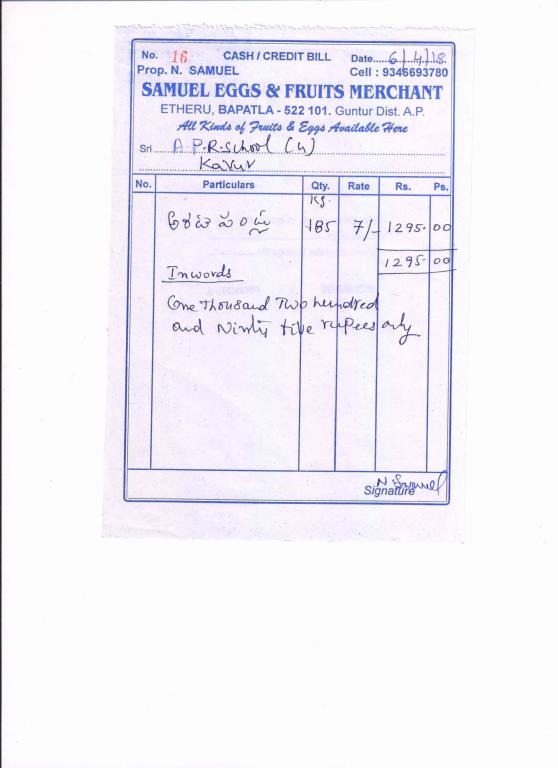 No. 16 CASH / CREDIT BILL Date......6/4/18.
Prop. N. SAMUEL Cell : 9346693780
SAMUEL EGGS & FRUITS MERCHANT
ETHERU, BAPATLA - 522 101. Guntur Dist. A.P.
All Kinds of Fruits & Eggs Available Here
Sri A P.R. School (G)
Kavur
No. Particulars Qty. Rate Rs. Ps.
Kg.
అరటి పండ్లు 185 7/- 1295. 00
1295. 00
Inwords
One Thousand Two hundred
and Ninty five rupees only
N. Samuel
Signature